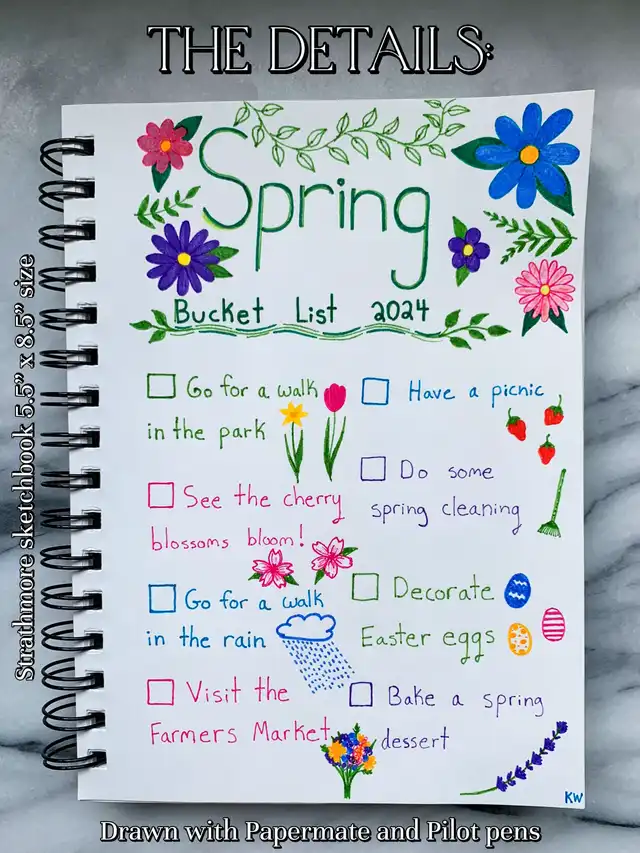 THE DETAILS:
Strathmore sketchbook 5.5" x 8.5" size
Spring
Bucket List 2024
Go for a walk
in the park
See the cherry
blossoms bloom!
Go for a walk
in the rain
Visit the
Farmers Market
Have a picnic
Do some
spring cleaning
Decorate
Easter eggs
Bake a spring
dessert
KW
Drawn with Papermate and Pilot pens